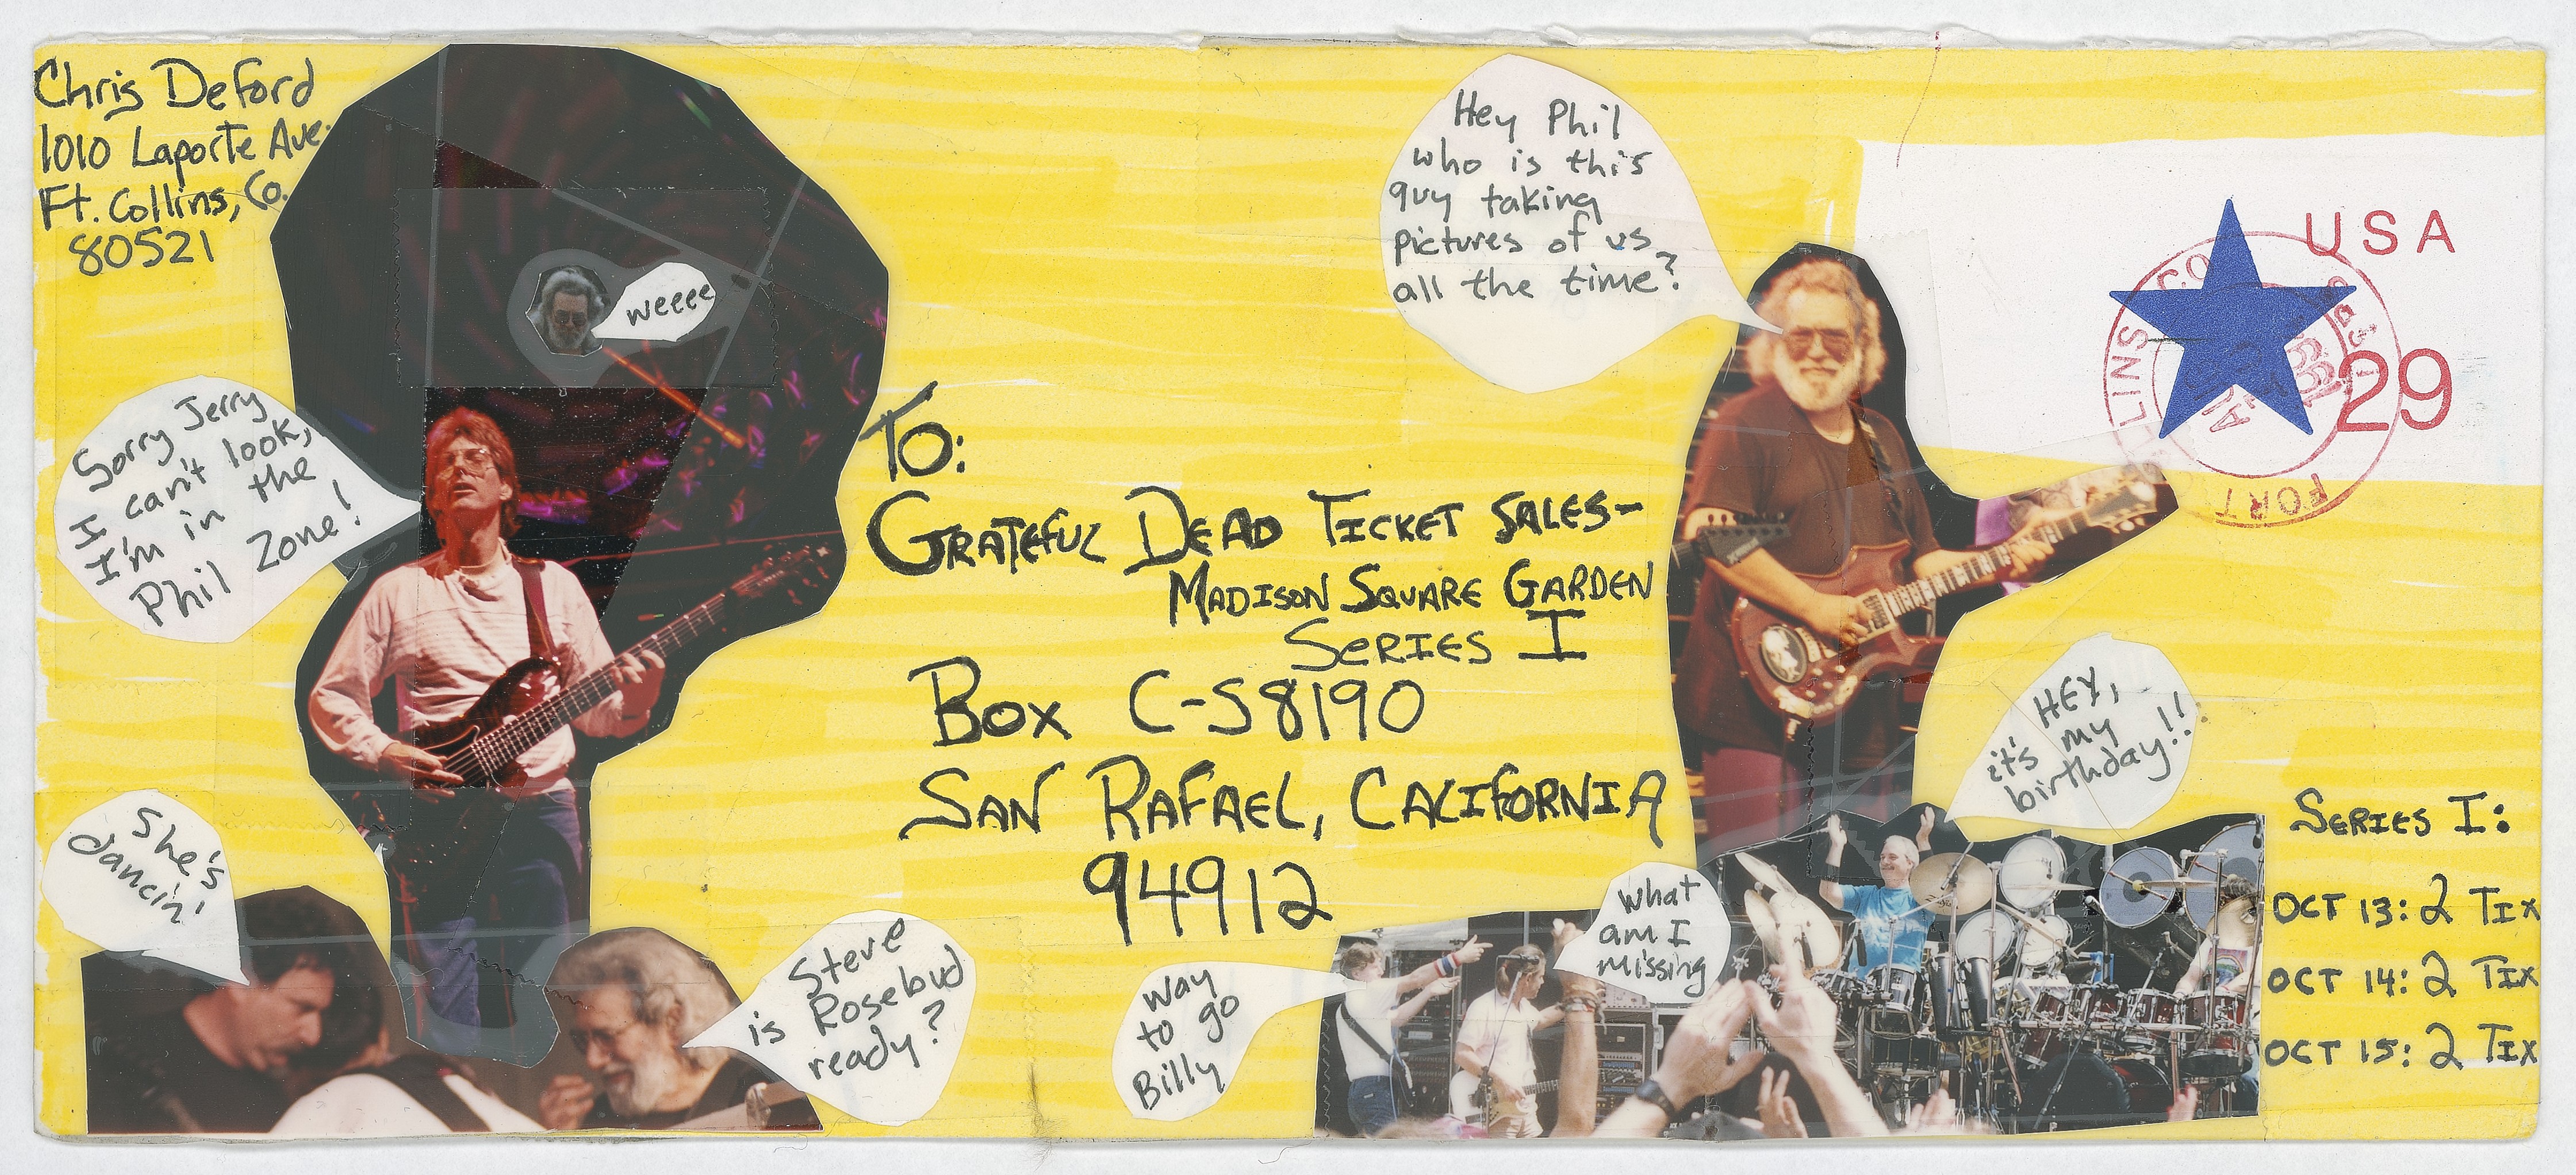 Chris Deford
1010 Laporte Ave.
Ft. Collins, Co.
80521
weeee
Sorry Jerry
I can't look,
I'm in the
Phil Zone!
She's
dancin'
Steve
is Rosebud
ready?
To:
GRATEFUL DEAD TICKET SALES-
MADISON SQUARE GARDEN
SERIES I
BOX C-S8190
SAN RAFAEL, CALIFORNIA
94912
Hey Phil
who is this
guy taking
pictures of us
all the time?
USA
29
FORT
LINS CO
HEY,
it's my
birthday!!
what
am I
missing
way
to go
Billy
SERIES I:
OCT 13: 2 TIX
OCT 14: 2 TIX
OCT 15: 2 TIX